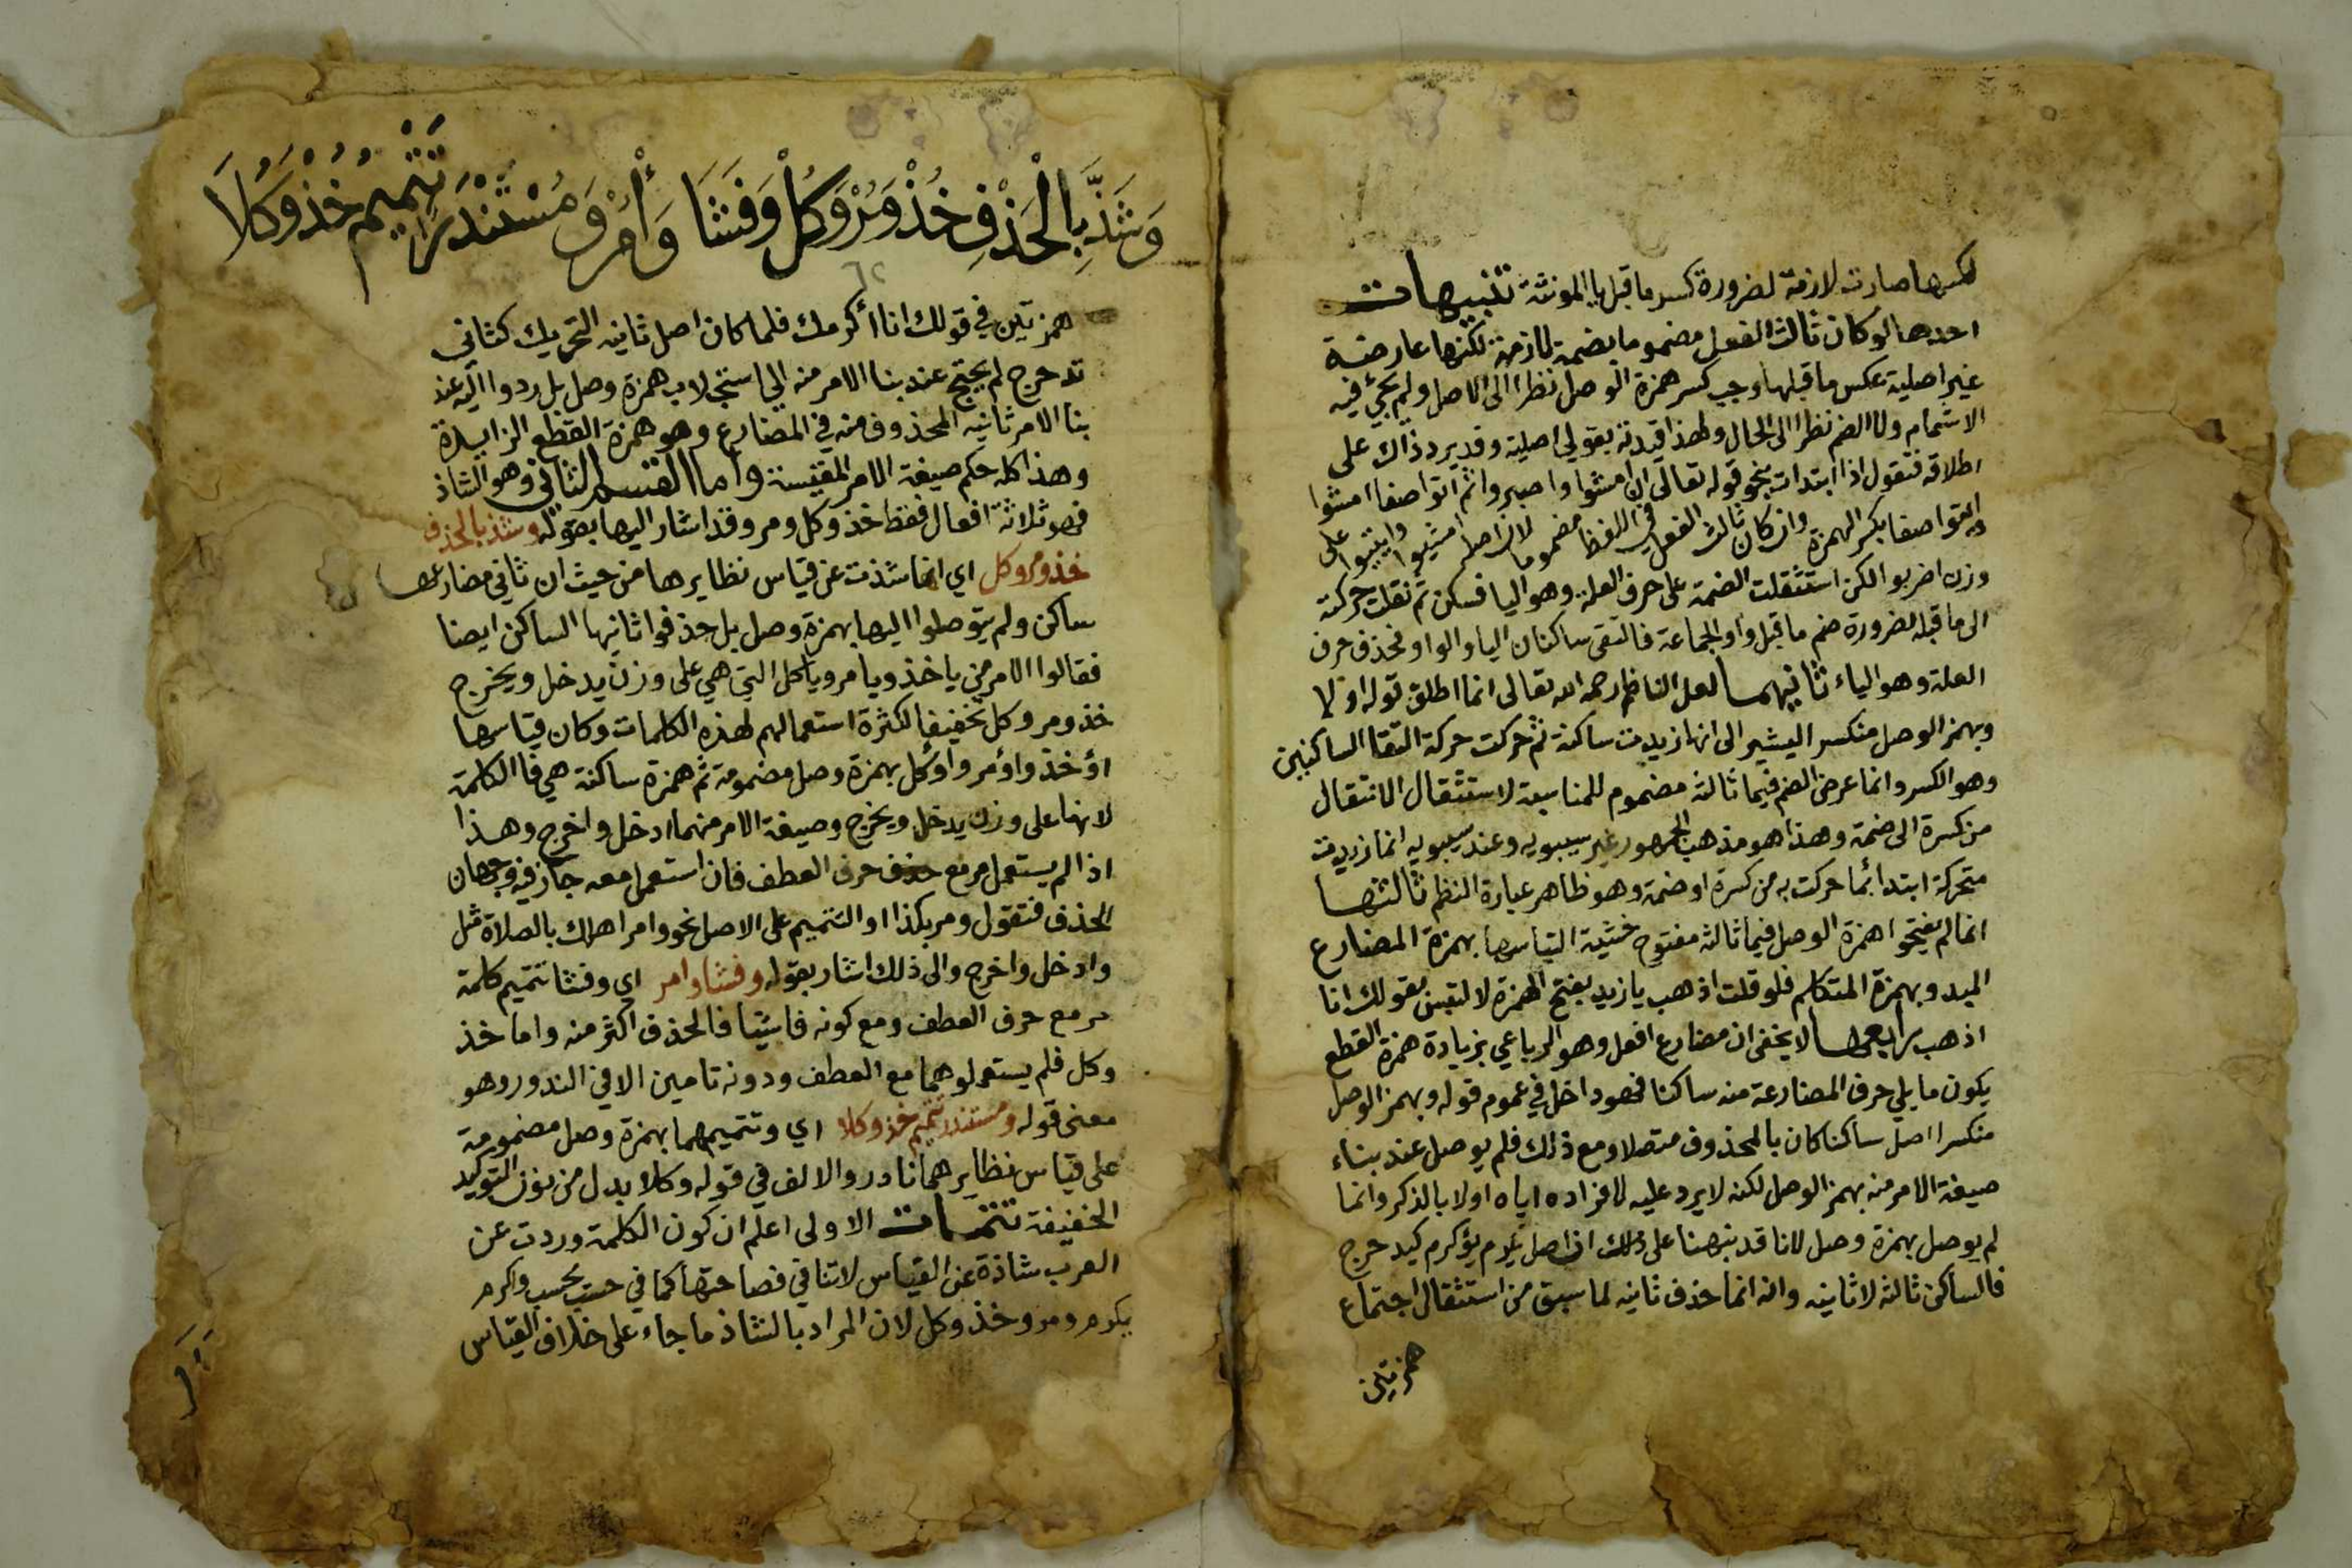 لكسرها صارت لازمة لضرورة كسر ما قبل يا المونثة تنبيهات
احدها لو كان ثالث الفعل مضموما بضمة لازمة لكنها عارضة
غير اصلية عكس ما قبلها وجب كسر همزة الوصل نظرا الى الاصل ولم يجئ فيه
الاشمام ولا الضم نظرا الى الحال ولهذا قيدته بقولي اصلية وقد يرد ذاك على
اطلاقه فتقول اذا ابتدات بنحو قوله تعالى ان امشوا واصبروا ثم ائتوا صفا امشوا
ايتوا صفا بكسر الهمزة وان كان ثالث الفعل في اللفظ مضموما لان اصله امشيوا وايتيوا على
وزن اضربوا لكن استثقلت الضمة على حرف العلة وهو اليا فسكن ثم نقلت حركته
الى ما قبله لضرورة ضم ما قبل واو الجماعة فالتقى ساكنان اليا والواو فحذف حرف
العلة وهو الياء ثانيهما لعل الناظم رحمه الله تعالى انما اطلق قوله اولا
وبهمز الوصل منكسر اليشير الى انها زيدت ساكنة ثم حركت حركة التقا الساكنين
وهو الكسر وانما عرض الضم فيما ثالثه مضموم للمناسبة لاستثقال الانتقال
من كسرة الى ضمة وهذا هو مذهب الجمهور غير سيبويه وعند سيبويه انما زيدت
متحركة ابتدا بما حركت به من كسرة او ضمة وهو ظاهر عبارة النظم ثالثها
انما لم يفتحوا همزة الوصل فيما ثالثه مفتوح خشية التباسها بهمزة المضارع
المبدو بهمزة المتكلم فلو قلت اذهب يا زيد بفتح الهمزة لالتبس بقولك انا
اذهب رابعها لا يخفى ان مضارع افعل وهو الرباعي بزيادة همزة القطع
يكون ما يلي حرف المضارعة منه ساكنا فهو داخل في عموم قوله وبهمز الوصل
منكسرا اصل ساكنا كان بالمحذوف متصلا ومع ذلك فلم يوصل عند بناء
صيغة الامر منه بهمز الوصل لكنه لا يرد عليه لافراده اياه اولا بالذكر وانما
لم يوصل بهمزة وصل لانا قد نبهنا على ذلك ان اصل يكرم يؤكرم كيدحرج
فالساكن ثالثه لا ثانيه وانه انما حذف ثانيه لما سبق من استثقال اجتماع
همزتين
وَشَذَّ بِالْحَذْفِ خُذْ وَمُرْ وَكُلْ وَفَشَا وَأْمُرْ وَمُسْتَنْدَرٌ تَتْمِيمُ خُذْ وَكُلَا
همزتين في قولك انا اأكرمك فلما كان اصل ثانيه التحريك كثاني
تدحرج لم يحتج عند بنا الامر منه الى استجلاب همزة وصل بل ردوا اليه عند
بنا الامر ثانيه المحذوف منه في المضارع وهو همزة القطع الزايدة
وهذا كله حكم صيغة الامر المقيسة واما القسم الثاني وهو الشاذ
فهو ثلاثة افعال فقط خذ وكل ومر وقد اشار اليها بقوله وشذ بالحذف
خذ ومر وكل اي انما شذت عن قياس نظايرها من حيث ان ثاني مضارعها
ساكن ولم يتوصلوا اليها بهمزة وصل بل حذفوا ثانيها الساكن ايضا
فقالوا الامر من ياخذ ويامر وياكل التي هي على وزن يدخل ويخرج
خذ ومر وكل تخفيفا لكثرة استعمالهم لهذه الكلمات وكان قياسها
اؤخذ واؤمر واؤكل بهمزة وصل مضمومة ثم همزة ساكنة هي فا الكلمة
لانها على وزن يدخل ويخرج وصيغة الامر منهما ادخل واخرج وهذا
اذا لم يستعمل مر مع حرف العطف فان استعمل معه جاز فيه وجهان
الحذف فتقول ومر بكذا او التتميم على الاصل نحو وامر اهلك بالصلاة مثل
وادخل واخرج والى ذلك اشار بقوله وفشا وامر اي وفشا تتميم كلمة
مر مع حرف العطف ومع كونه فاشيا فالحذف اكثر منه واما خذ
وكل فلم يستعملوهما مع العطف ودونه تامين الا في الندور وهو
معنى قوله ومستندر تتميم خذ وكلا اي وتتميمهما بهمزة وصل مضمومة
على قياس نظايرهما نادر والالف في قوله وكلا بدل من نون التوكيد
الخفيفة تتمات الاولى اعلم ان كون الكلمة وردت عن
العرب شاذة عن القياس لا تنافي فصاحتها كما في حسب يحسب واكرم
يكرم ومر وخذ وكل لان المراد بالشاذ ما جاء على خلاف القياس